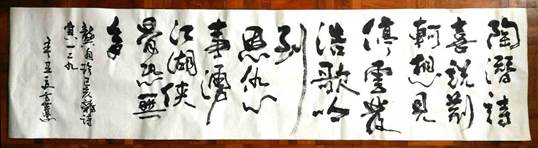 陶潛詩
喜説荊
軻想見
停雲發
浩歌吟
到
恩仇心
事湧
江湖俠
骨恐無
多
龔自珍己亥雜詩
其一二九
辛丑